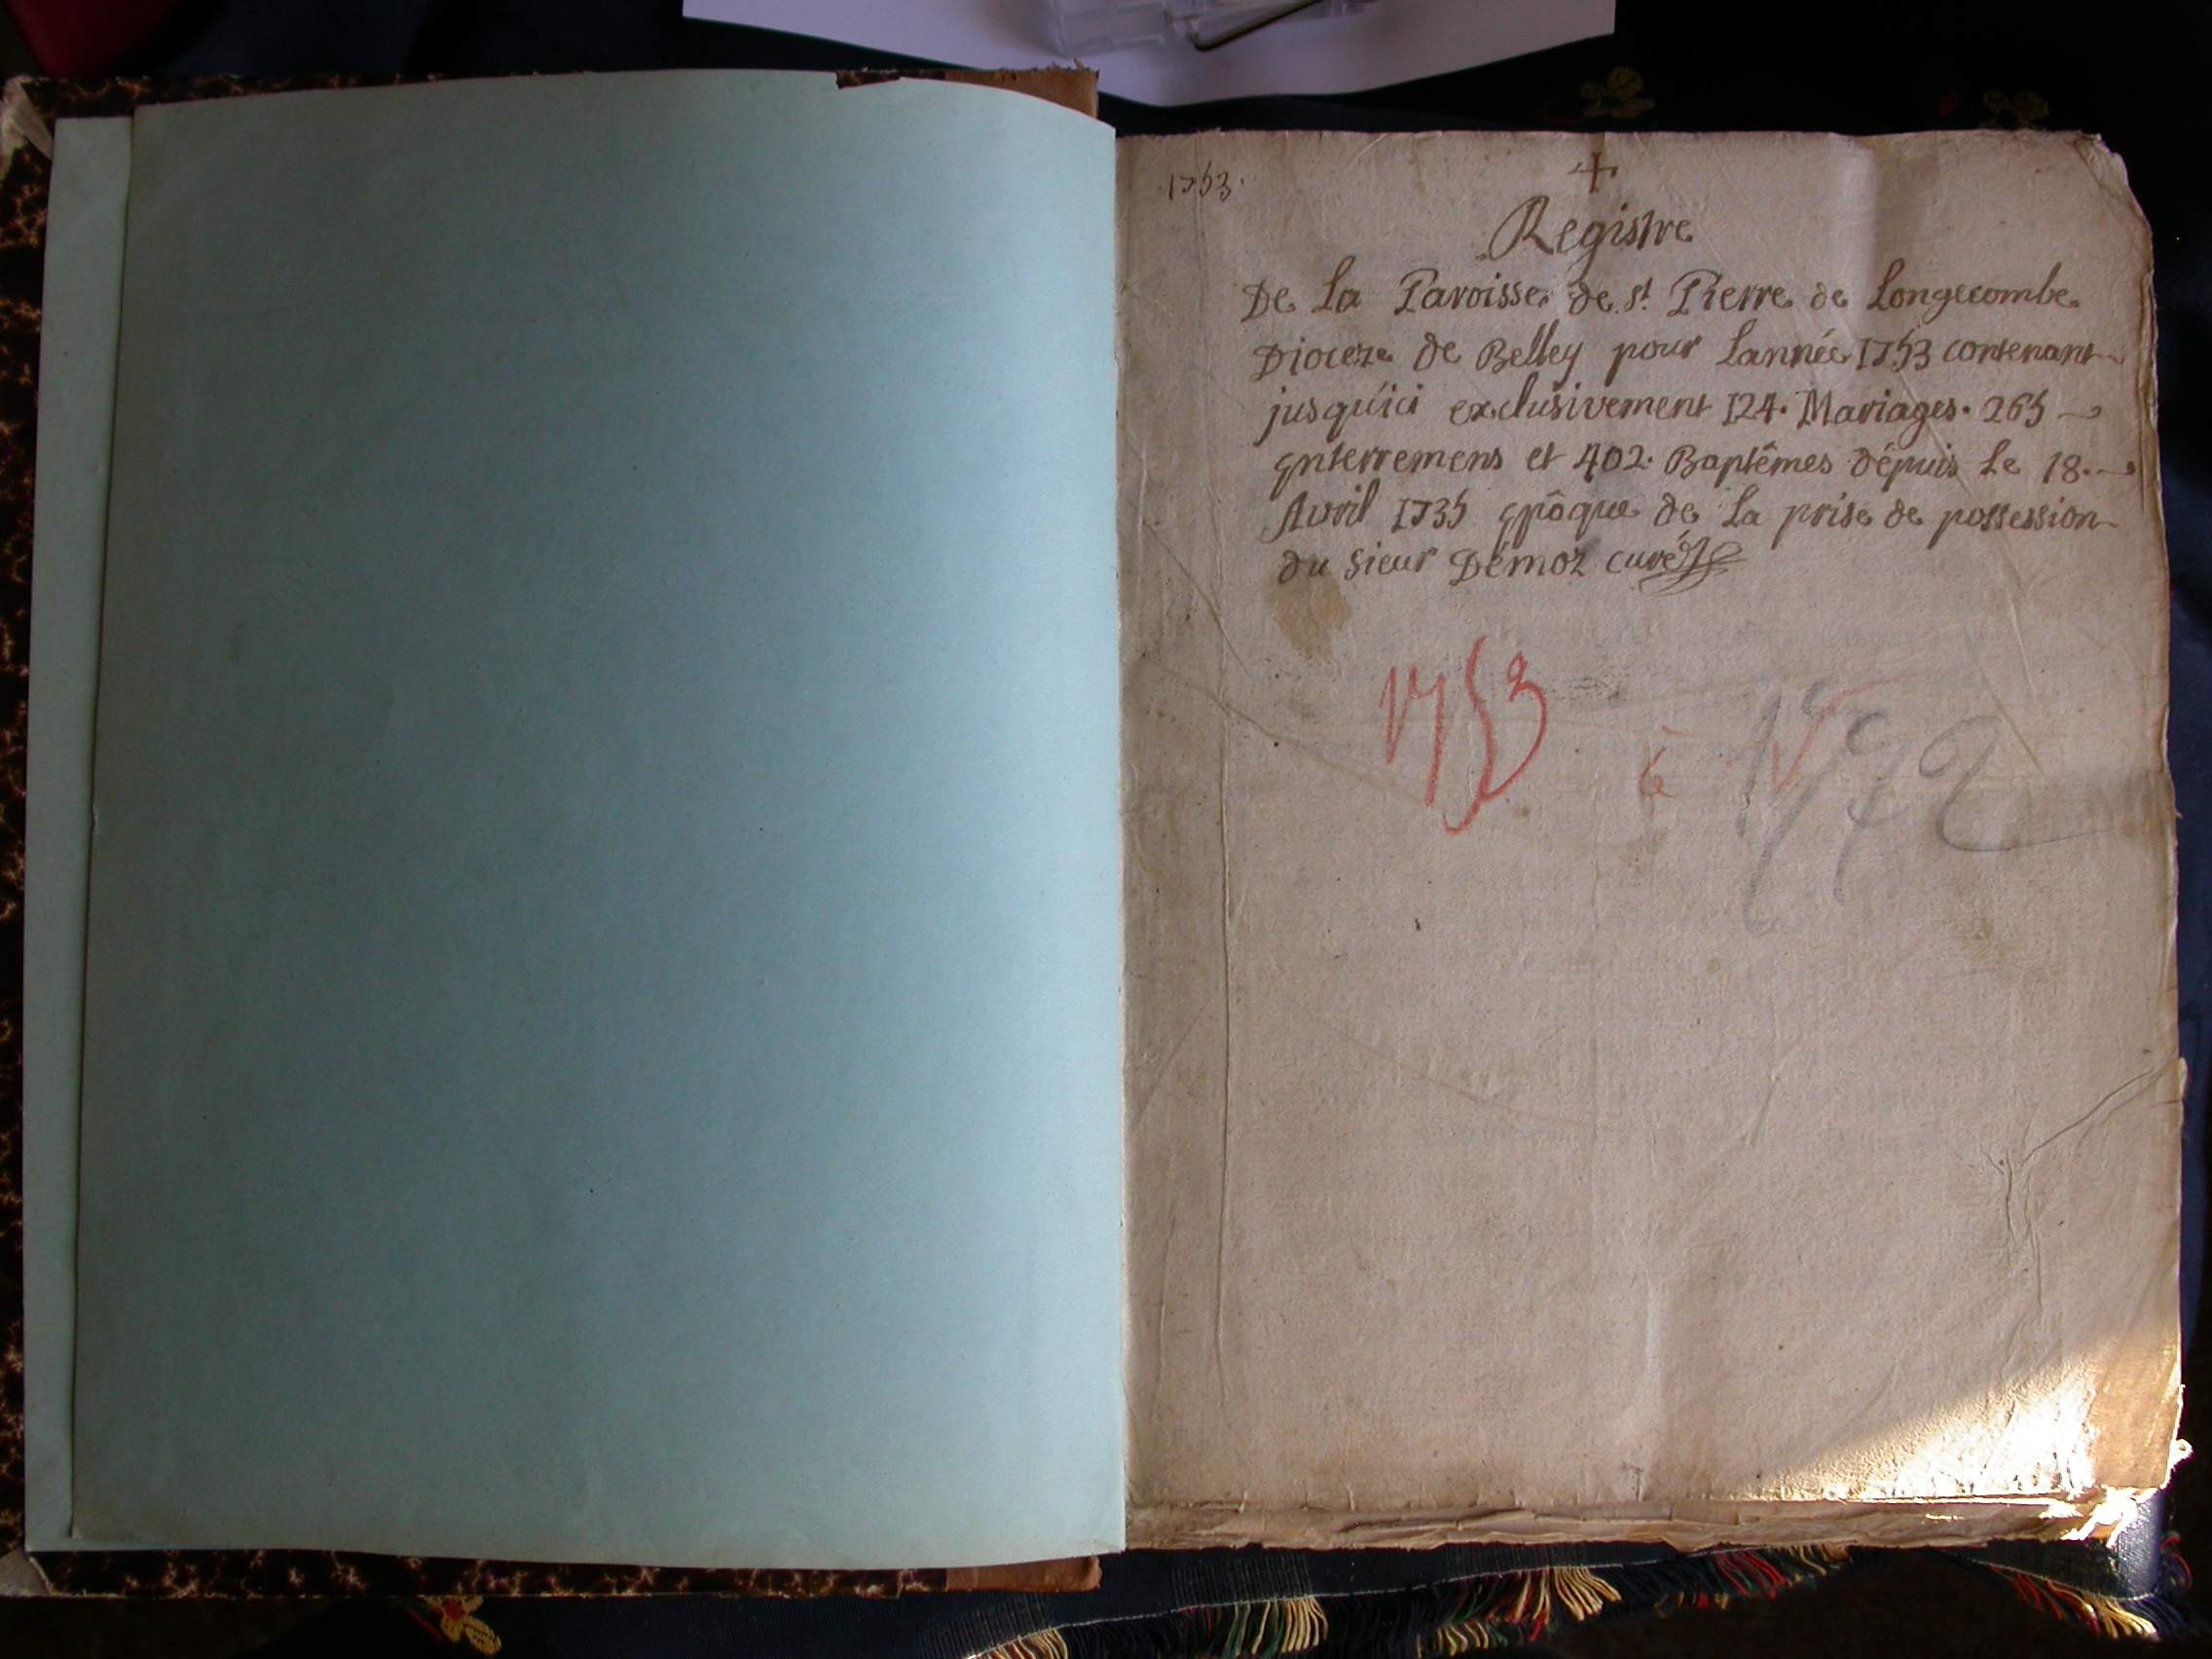 .1753.
+
Registre
De La Paroisse de St. Pierre de Longecombe
Dioceze de Belley pour Lannée 1753 contenant
jusqu'ici exclusivement 124. Mariages. 265
enterremens et 402. Baptêmes dépuis Le 18.
Avril 1735 epôque de La prise de possession
du sieur Démoz curé
1753 à